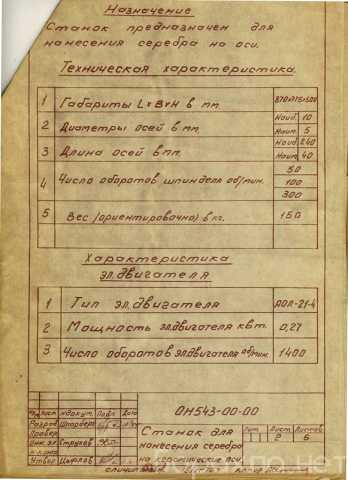 Назначение
Станок предназначен для
нанесения серебра на оси.
Техническая характеристика.
1 Габариты L×B×H в мм.
2 Диаметры осей в мм. Наиб. 10
Наим. 5
3 Длина осей в мм. Наиб. 240
Наим. 40
4 Число оборотов шпинделя об/мин. 50
100
300
5 Вес (ориентировочно) в кг. 150
Характеристика
эл.двигателя
1 Тип эл.двигателя АОЛ-21-4
2 Мощность эл.двигателя квт. 0,27
3 Число оборотов эл.двигателя об/мин. 1400
ОН543-00-00
Станок для
нанесения серебра
на керамические оси.
Лит. Лист Листов
1 2 6
Подп. Дата
Разраб.
Провер.